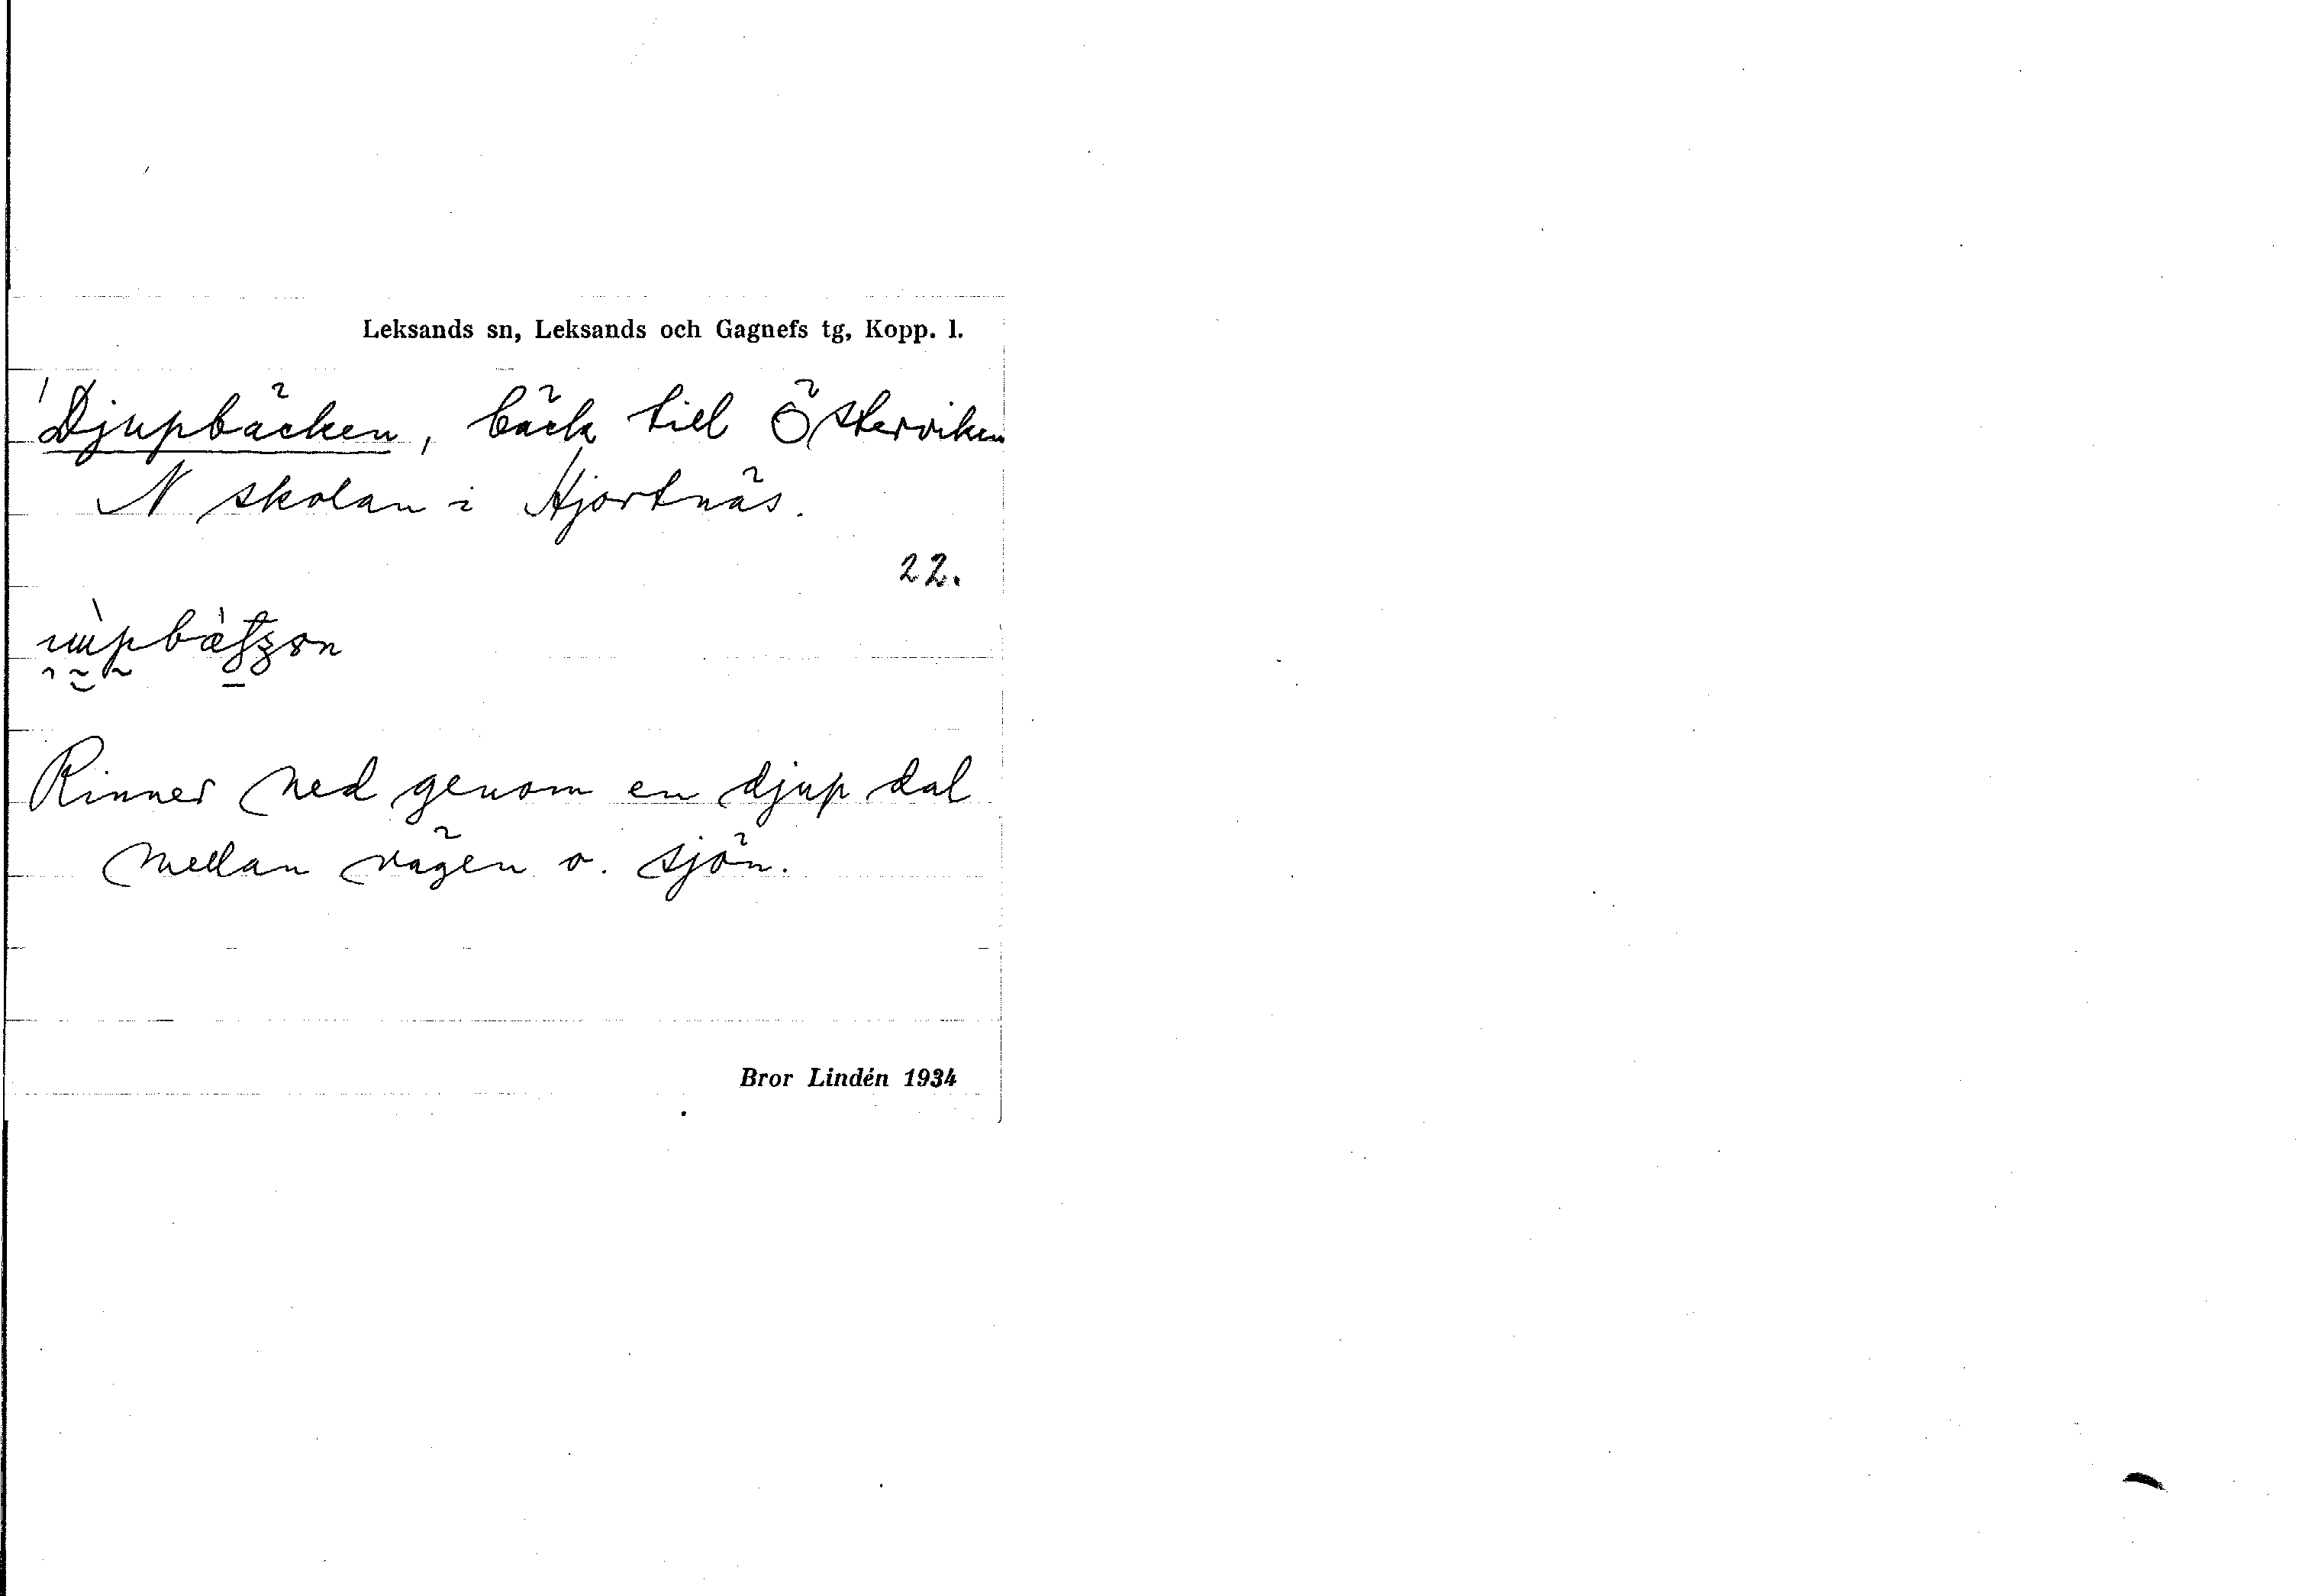 Leksands sn, Leksands och Gagnefs tg, Kopp. l.
Djupbäcken, bäck till Österviken
N skolan i Hjortnäs.
22.
Rinner ned genom en djup dal
mellan vägen o. sjön.
Bror Lindén 1934